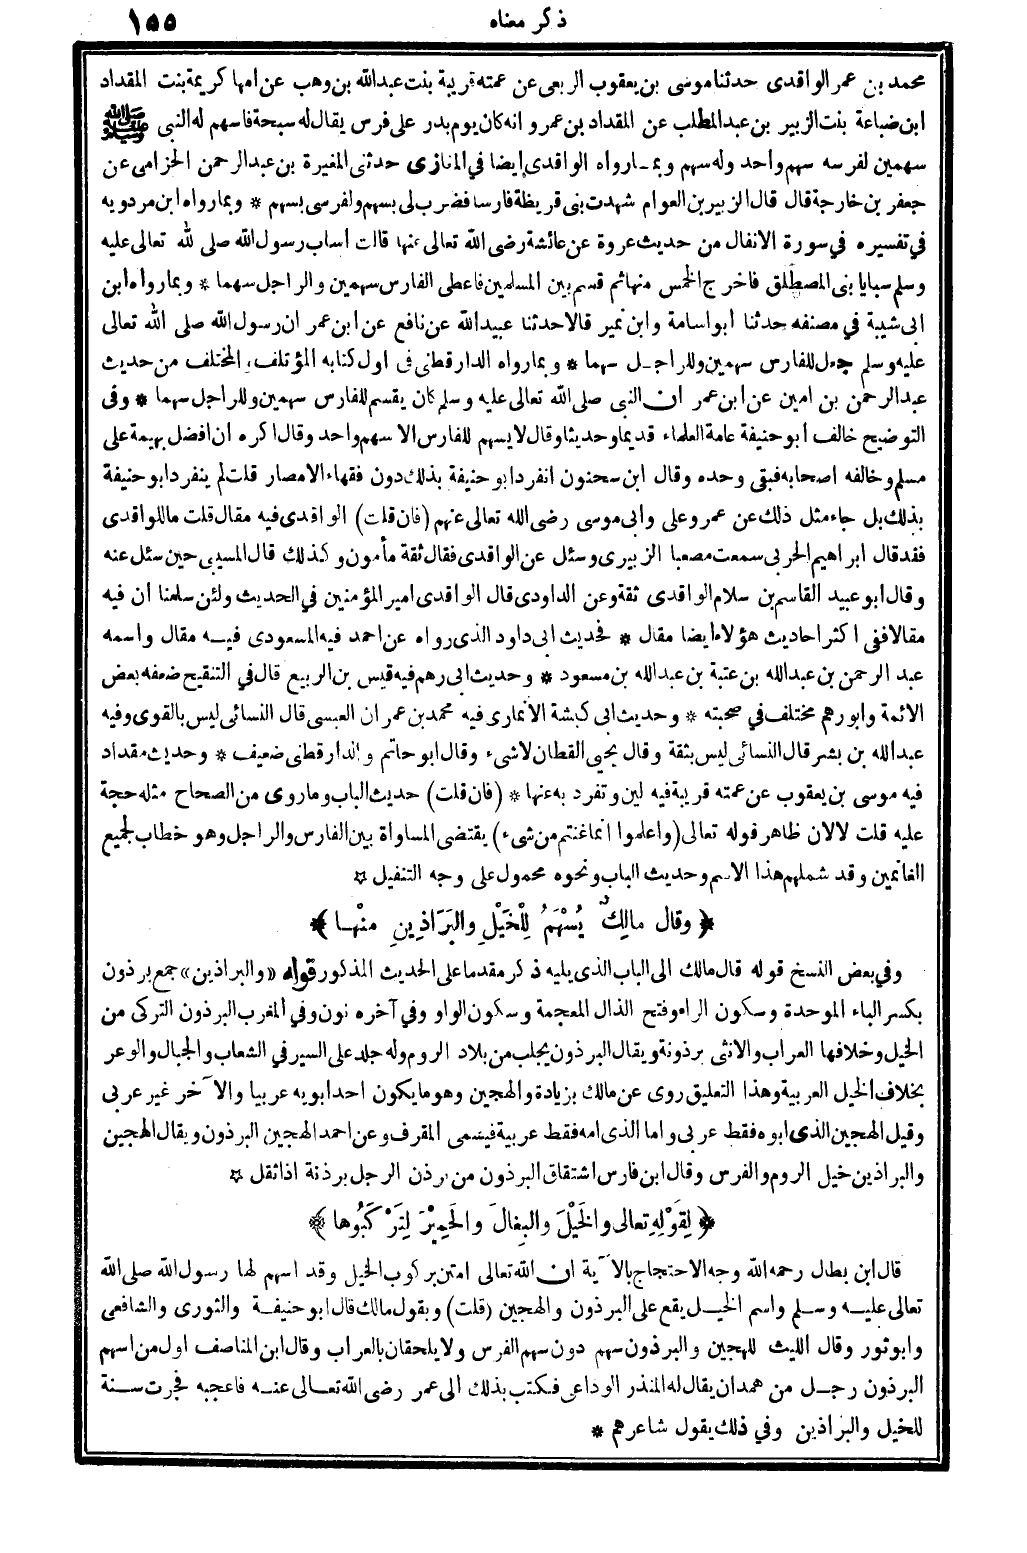 ذكر معناه ١٥٥
محمد بن عمر الواقدى حدثنا موسى بن يعقوب الربعى عن عمته قريبة بنت عبدالله بن وهب عن امها كريمة بنت المقداد
ابن ضباعة بنت الزبير بن عبدالمطلب عن المقداد بن عمرو انه كان يوم بدر على فرس يقال له سبحة فاسهم له النبى ﷺ
سهمين لفرسه سهم واحد وله سهم وبما رواه الواقدى ايضا في المنازى حدثنى المغيرة بن عبدالرحمن الحزامى عن
جعفر بن خارجة قال قال الزبير بن العوام شهدت بنى قريظة فارسا فضرب لى بسهم ولفرسى بسهم * وبما رواه ابن مردويه
في تفسيره في سورة الانفال من حديث عروة عن عائشة رضى الله تعالى عنها قالت أساب رسول الله صلى لله تعالى عليه
وسلم سبايا بنى المصطلق فاخرج الخمس منها ثم قسم بين المسلمين فاعطى الفارس سهمين والراجل سهما * وبما رواه ابن
ابى شيبة في مصنفه حدثنا أبو اسامة وابن نمير قالا حدثنا عبيدالله عن نافع عن ابن عمر ان رسول الله صلى الله تعالى
عليه وسلم جعل للفارس سهمين وللراجل سهما * وبما رواه الدارقطنى في اول كتابه المؤتلف والمختلف من حديث
عبدالرحمن بن امين عن ابن عمر ان النبى صلى الله تعالى عليه وسلم كان يقسم للفارس سهمين وللراجل سهما * وفي
التوضيح خالف أبو حنيفة عامة العلماء قديما وحديثا وقال لا يسهم للفارس الا سهم واحد وقال اكره ان افضل بهيمة على
مسلم وخالفه اصحابه فبقى وحده وقال ابن سحنون انفرد ابو حنيفة بذلك دون فقهاء الامصار قلت لم ينفرد ابو حنيفة
بذلك بل جاء مثل ذلك عن عمر وعلى وابى موسى رضى الله تعالى عنهم (فان قلت) الواقدى فيه مقال قلت ما للواقدى
فقد قال ابراهيم الحربى سمعت مصعبا الزبيرى وسئل عن الواقدى فقال ثقة مأمون وكذلك قال المسيبى حين سئل عنه
وقال ابو عبيد القاسم بن سلام الواقدى ثقة وعن الداودى قال الواقدى امير المؤمنين في الحديث ولئن سلمنا أن فيه
مقالا ففى اكثر احاديث هؤلاء ايضا مقال * فحديث ابى داود الذى رواه عن احمد فيه المسعودى فيه مقال واسمه
عبد الرحمن بن عبدالله بن عتبة بن عبدالله بن مسعود * وحديث ابى رهم فيه قيس بن الربيع قال في التنقيح ضعفه بعض
الائمة وابو رهم مختلف في صحبته * وحديث ابى كبشة الانمارى فيه محمد بن عمران العبسى قال النسائى ليس بالقوى وفيه
عبدالله بن بشر قال النسائى ليس بثقة وقال يحيى القطان لا شيء وقال ابو حاتم والدارقطنى ضعيف * وحديث مقداد
فيه موسى بن يعقوب عن عمته قريبة فيه لين وتفرد به عنها * (فان قلت) حديث الباب وما روى من الصحاح مثله حجة
عليه قلت لا لان ظاهر قوله تعالى (واعلموا انما غنتم من شيء) يقتضى المساواة بين الفارس والراجل وهو خطاب لجميع
الغانمين وقد شملهم هذا الاسم وحديث الباب ونحوه محمول على وجه التنفيل *
﴿ وقال مالِكٌ يُسْهَمُ لِلْخَيْلِ والبَرَاذِينِ مِنْها ﴾
وفي بعض النسخ قوله قال مالك الى الباب الذى يليه ذكر مقدما على الحديث المذكور قوله «والبراذين» جمع برذون
بكسر الباء الموحدة وسكون الراء وفتح الذال المعجمة وسكون الواو وفي آخره نون وفي المغرب البرذون التركى من
الخيل وخلافها العراب والانثى برذونة ويقال البرذون يجلب من بلاد الروم وله جلد على السير في الشعاب والجبال والوعر
بخلاف الخيل العربية وهذا التعليق روى عن مالك بزيادة والهجين وهو ما يكون احد ابويه عربيا والآخر غير عربى
وقيل الهجين الذى ابوه فقط عربى واما الذى امه فقط عربية فيسمى المقرف وعن احمد الهجين البرذون ويقال الهجين
والبراذين خيل الروم والفرس وقال ابن فارس اشتقاق البرذون من برذن الرجل برذنة اذا ثقل *
﴿ لِقَوْلِهِ تعالى والخَيْلَ والبِغَالَ والحَمِيرَ لِتَرْكَبُوها ﴾
قال ابن بطال رحمه الله وجه الاحتجاج بالآية ان الله تعالى امتن بركوب الخيل وقد اسهم لها رسول الله صلى الله
تعالى عليه وسلم واسم الخيل يقع على البرذون والهجين (قلت) وبقول مالك قال ابو حنيفة والثورى والشافعى
وابو ثور وقال الليث للهجين والبرذون سهم دون سهم الفرس ولا يلحقان بالعراب وقال ابن المناصف اول من اسهم
البرذون رجل من همدان يقال له المنذر الوداعى فكتب بذلك الى عمر رضى الله تعالى عنه فاعجبه فجرت سنة
للخيل والبراذين وفي ذلك يقول شاعرهم *